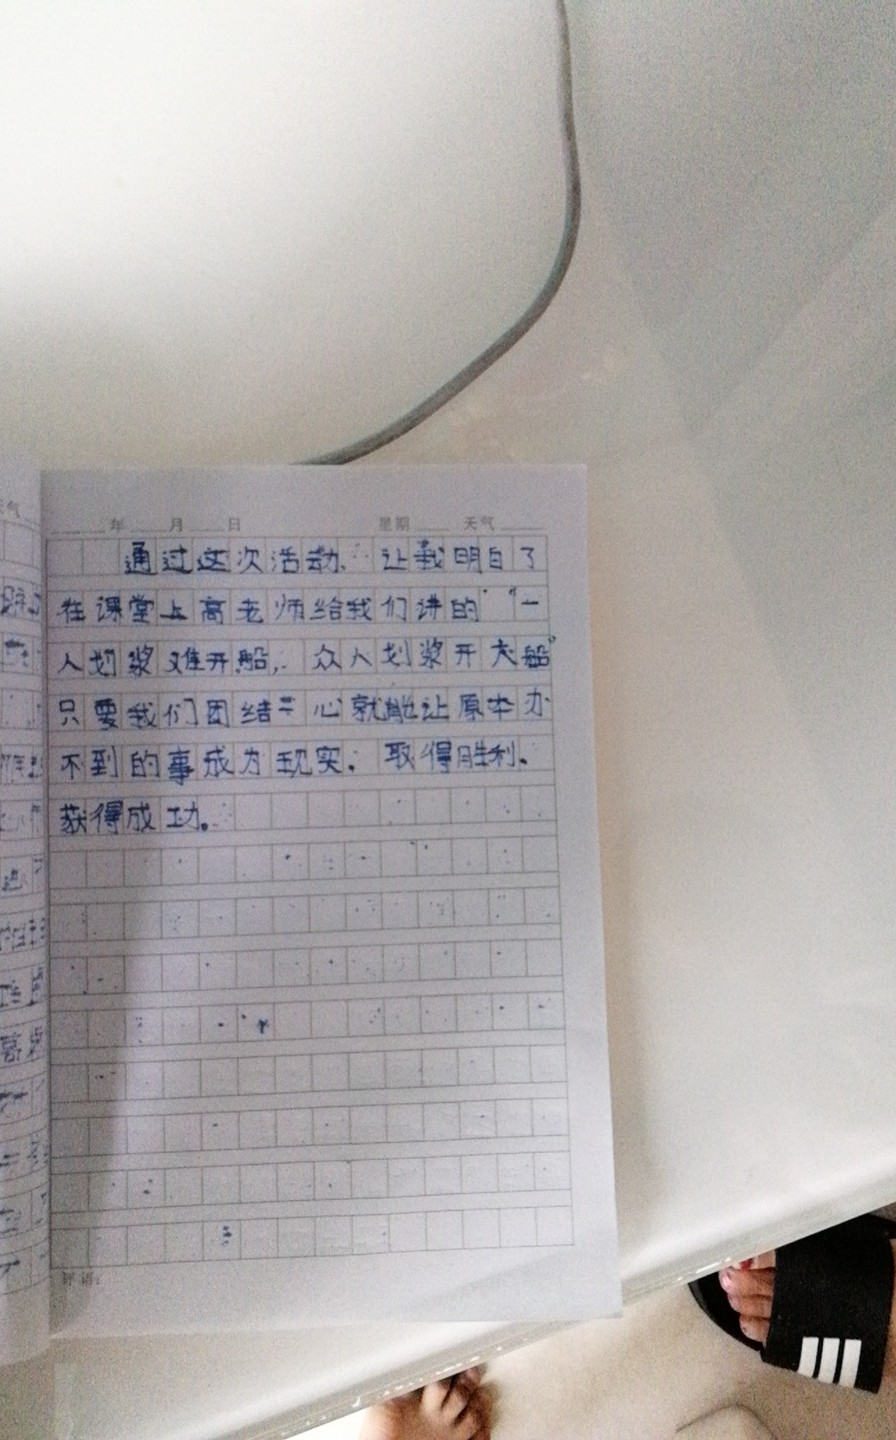 天气
年 月 日 星期 天气
通过这次活动,让我明白了
在课堂上高老师给我们讲的"一
人划浆难开船,众人划浆开大船"
只要我们团结一心就能让原本办
不到的事成为现实。取得胜利。
获得成功。
评语: